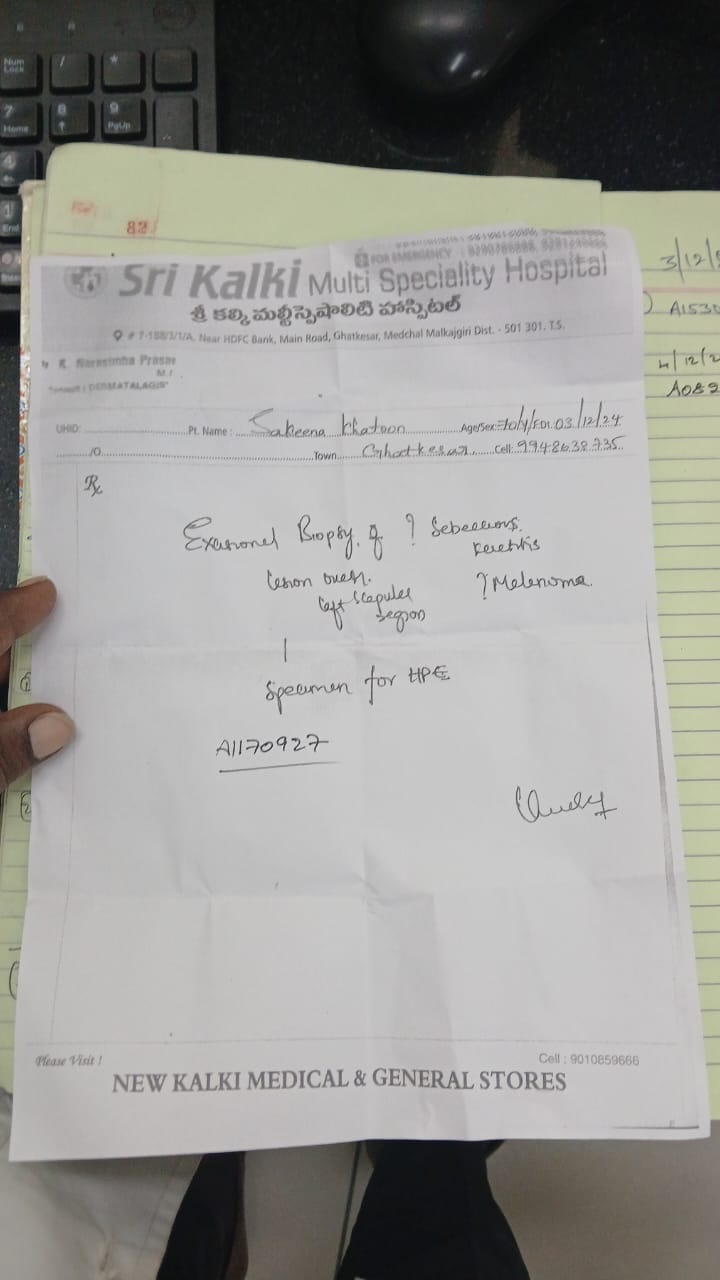 Num
Lock
/
*
7
Home
8
9
PgUp
4
1
End
82
FOR EMERGENCY :
Sri Kalki Multi Speciality Hospital
శ్రీ కల్కి మల్టీస్పెషాలిటి హాస్పిటల్
# 7-188/3/1/A, Near HDFC Bank, Main Road, Ghatkesar, Medchal Malkajgiri Dist. - 501 301. T.S.
Narasimha Prasad
DERMATALAGIST
UHID: Pt. Name : Sakeena Khatoon Age/Sex: 70/y/F 03/12/24
/O Town Ghatkesar Cell: 9948638735
Rx
Excisional Biopsy of ? Sebecceious
Keretitis
lesion over ? Melenoma
left Scapuler
region
Specimen for HPE
A1170927
Please Visit !
Cell : 9010859666
NEW KALKI MEDICAL & GENERAL STORES
3/12/2
A1530
4/12/2
A089